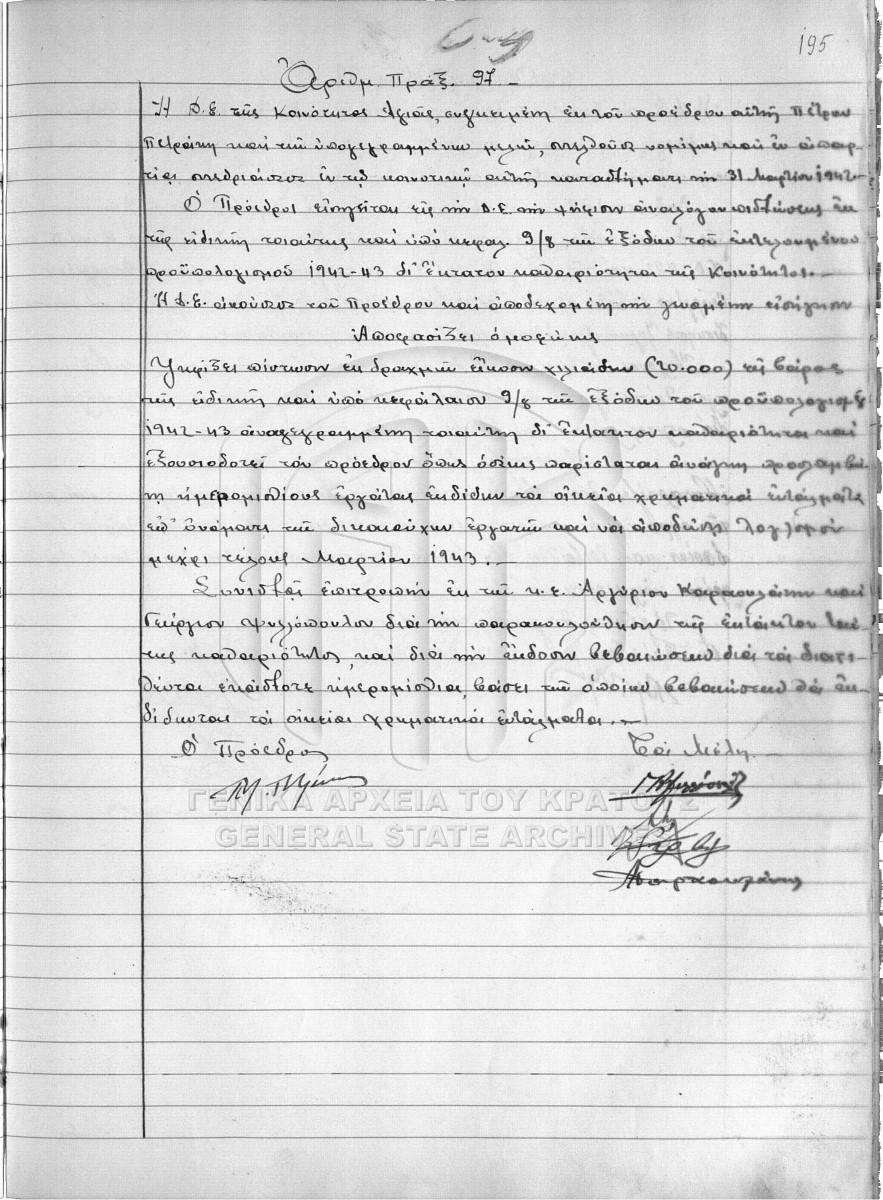 195
Ἀριθμ. Πράξ. 97.-
Ἡ Δ.Ε. τῆς Κοινότητος Ἁγιᾶς, συγκειμένη ἐκ τοῦ προέδρου αὐτῆς Πέτρου
Πετράκη καὶ τῶν ὑπογεγραμμένων μελῶν, συνελθοῦσα νομίμως καὶ ἐν ἀπαρ-
τίᾳ συνεδριάσασα ἐν τῷ κοινοτικῷ αὐτῆς καταστήματι τὴν 31 Μαρτίου 1942.-
Ὁ Πρόεδρος εἰσηγεῖται εἰς τὴν Δ.Ε. τὴν ψήφισιν ἀναλόγου πιστώσεως ἐκ
τῆς εἰδικῆς τοιαύτης καὶ ὑπὸ κεφαλ. 9/8 τῶν ἐξόδων τοῦ ἐκτελουμένου
προϋπολογισμοῦ 1942-43 δι' ἔκτακτον καθαριότητα τῆς Κοινότητος.-
Ἡ Δ.Ε. ἀκούσασα τοῦ Προέδρου καὶ ἀποδεχομένη τὴν γενομένην εἰσήγησιν
Ἀποφασίζει ὁμοφώνως
Ψηφίζει πίστωσιν ἐκ δραχμῶν εἴκοσι χιλιάδων (20.000) εἰς βάρος
τῆς εἰδικῆς καὶ ὑπὸ κεφάλαιον 9/8 τῶν ἐξόδων τοῦ προϋπολογισμοῦ
1942-43 ἀναγεγραμμένης τοιαύτης δι' ἔκτακτον καθαριότητα καὶ
ἐξουσιοδοτεῖ τὸν πρόεδρον ὅπως ὁσάκις παρίσταται ἀνάγκη προσλαμβά-
νῃ ἡμερομισθίους ἐργάτας ἐκδίδων τὰ οἰκεῖα χρηματικὰ ἐντάλματα
ἐπ' ὀνόματι τῶν δικαιούχων ἐργατῶν καὶ νὰ ἀποδώσῃ λογ/σμὸν
μέχρι τέλους Μαρτίου 1943.-
Συνιστᾷ ἐπιτροπὴν ἐκ τῶν κ.κ. Ἀργυρίου Καραουλάνη καὶ
Γεωργίου Ψυλλόπουλου διὰ τὴν παρακολούθησιν τῆς ἐκτάκτου ταύ-
της καθαριότητος, καὶ διὰ τὴν ἔκδοσιν βεβαιώσεων διὰ τὰ διατι-
θέμενα ἑκάστοτε ἡμερομίσθια, βάσει τῶν ὁποίων βεβαιώσεων θὰ ἐκ-
δίδωνται τὰ οἰκεῖα χρηματικὰ ἐντάλματα.-
Ὁ Πρόεδρος
Τὰ Μέλη
ΓΕΝΙΚΑ ΑΡΧΕΙΑ ΤΟΥ ΚΡΑΤΟΥΣ
GENERAL STATE ARCHIVES